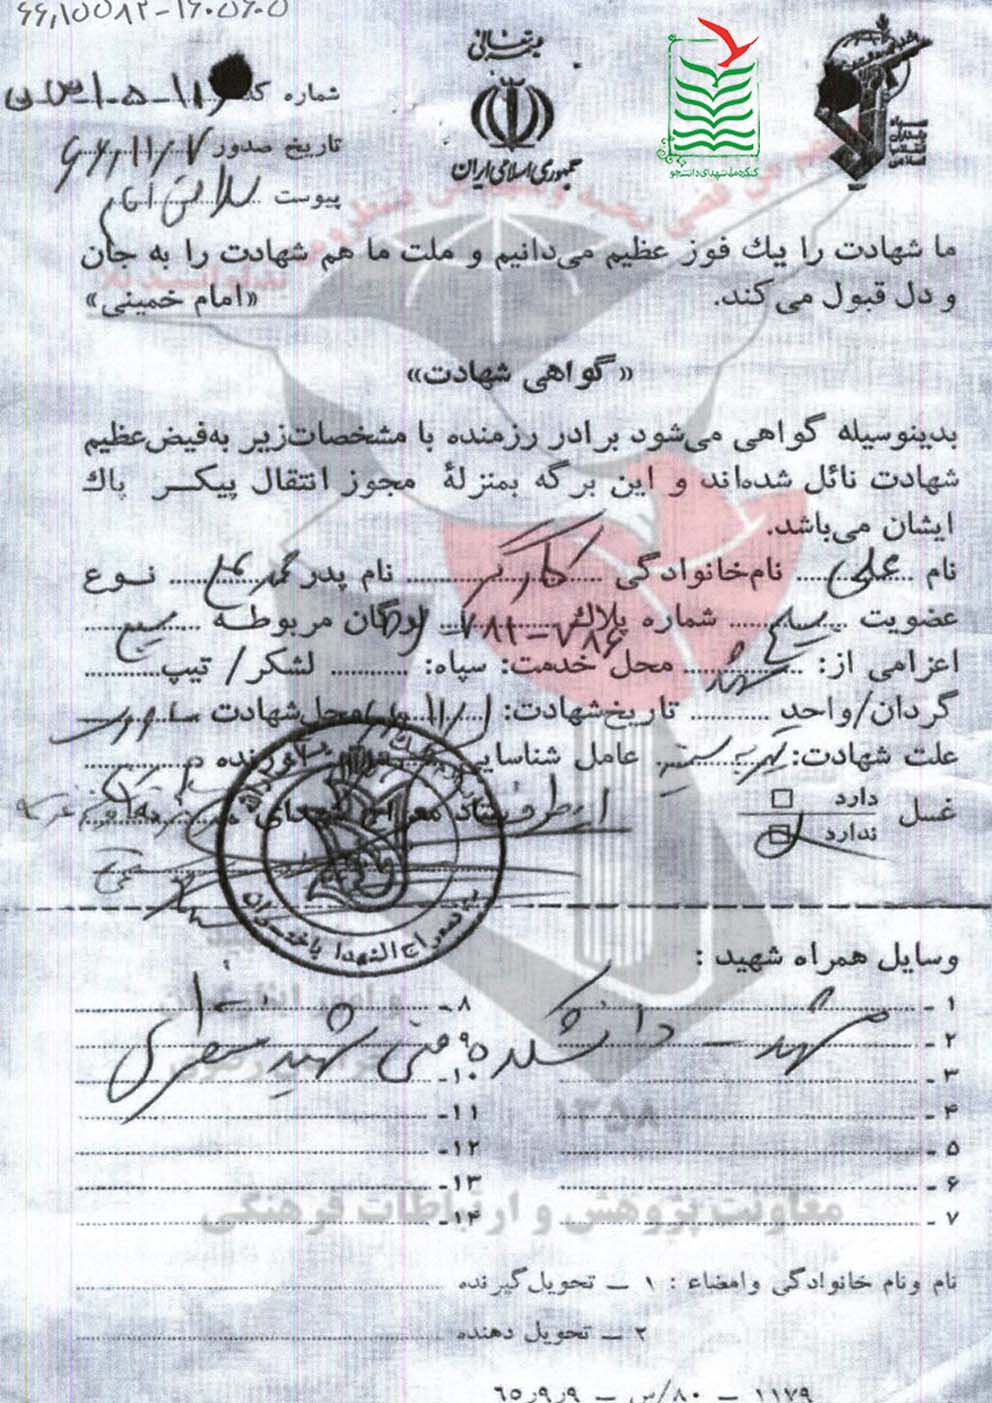 بسمه تعالی
جمهوری اسلامی ایران
سپاه پاسداران انقلاب اسلامی
کنگره ملی شهدای دانشجو
شماره
تاریخ صدور ۶۶/۱۱/۷
پیوست
ما شهادت را یك فوز عظیم می‌دانیم و ملت ما هم شهادت را به جان
و دل قبول می‌کند. «امام خمینی»
«گواهی شهادت»
بدینوسیله گواهی می‌شود برادر رزمنده با مشخصات‌زیر به‌فیض‌عظیم
شهادت نائل شده‌اند و این برگه بمنزلهٔ مجوز انتقال پیکر پاك
ایشان می‌باشد.
نام علی نام‌خانوادگی کارگر نام پدر محمد علی نوع
عضویت بسیج شماره پلاك ارگان مربوطه بسیج
اعزامی از: مشهد محل خدمت: سپاه: لشکر/ تیپ
گردان/واحد تاریخ‌شهادت: محل‌شهادت
علت شهادت: عامل شناسایی آورنده
غسل دارد ندارد از طرف ستاد معراج شهدای
وسایل همراه شهید :
۱ - ۸ -
۲ - ۹ -
مشهد - دانشکده فنی شهید منتظری
۳ - ۱۰ -
۴ - ۱۱ -
۱۳۵۸
۵ - ۱۲ -
۶ - ۱۳ -
معاونت پژوهش و ارتباطات فرهنگی
۷ - ۱۴ -
نام ونام خانوادگی وامضاء : ۱ – تحویل‌گیرنده
۲ – تحویل دهنده
۱۱۷۹ – ۸۰/س – ۶۵٫۹٫۹